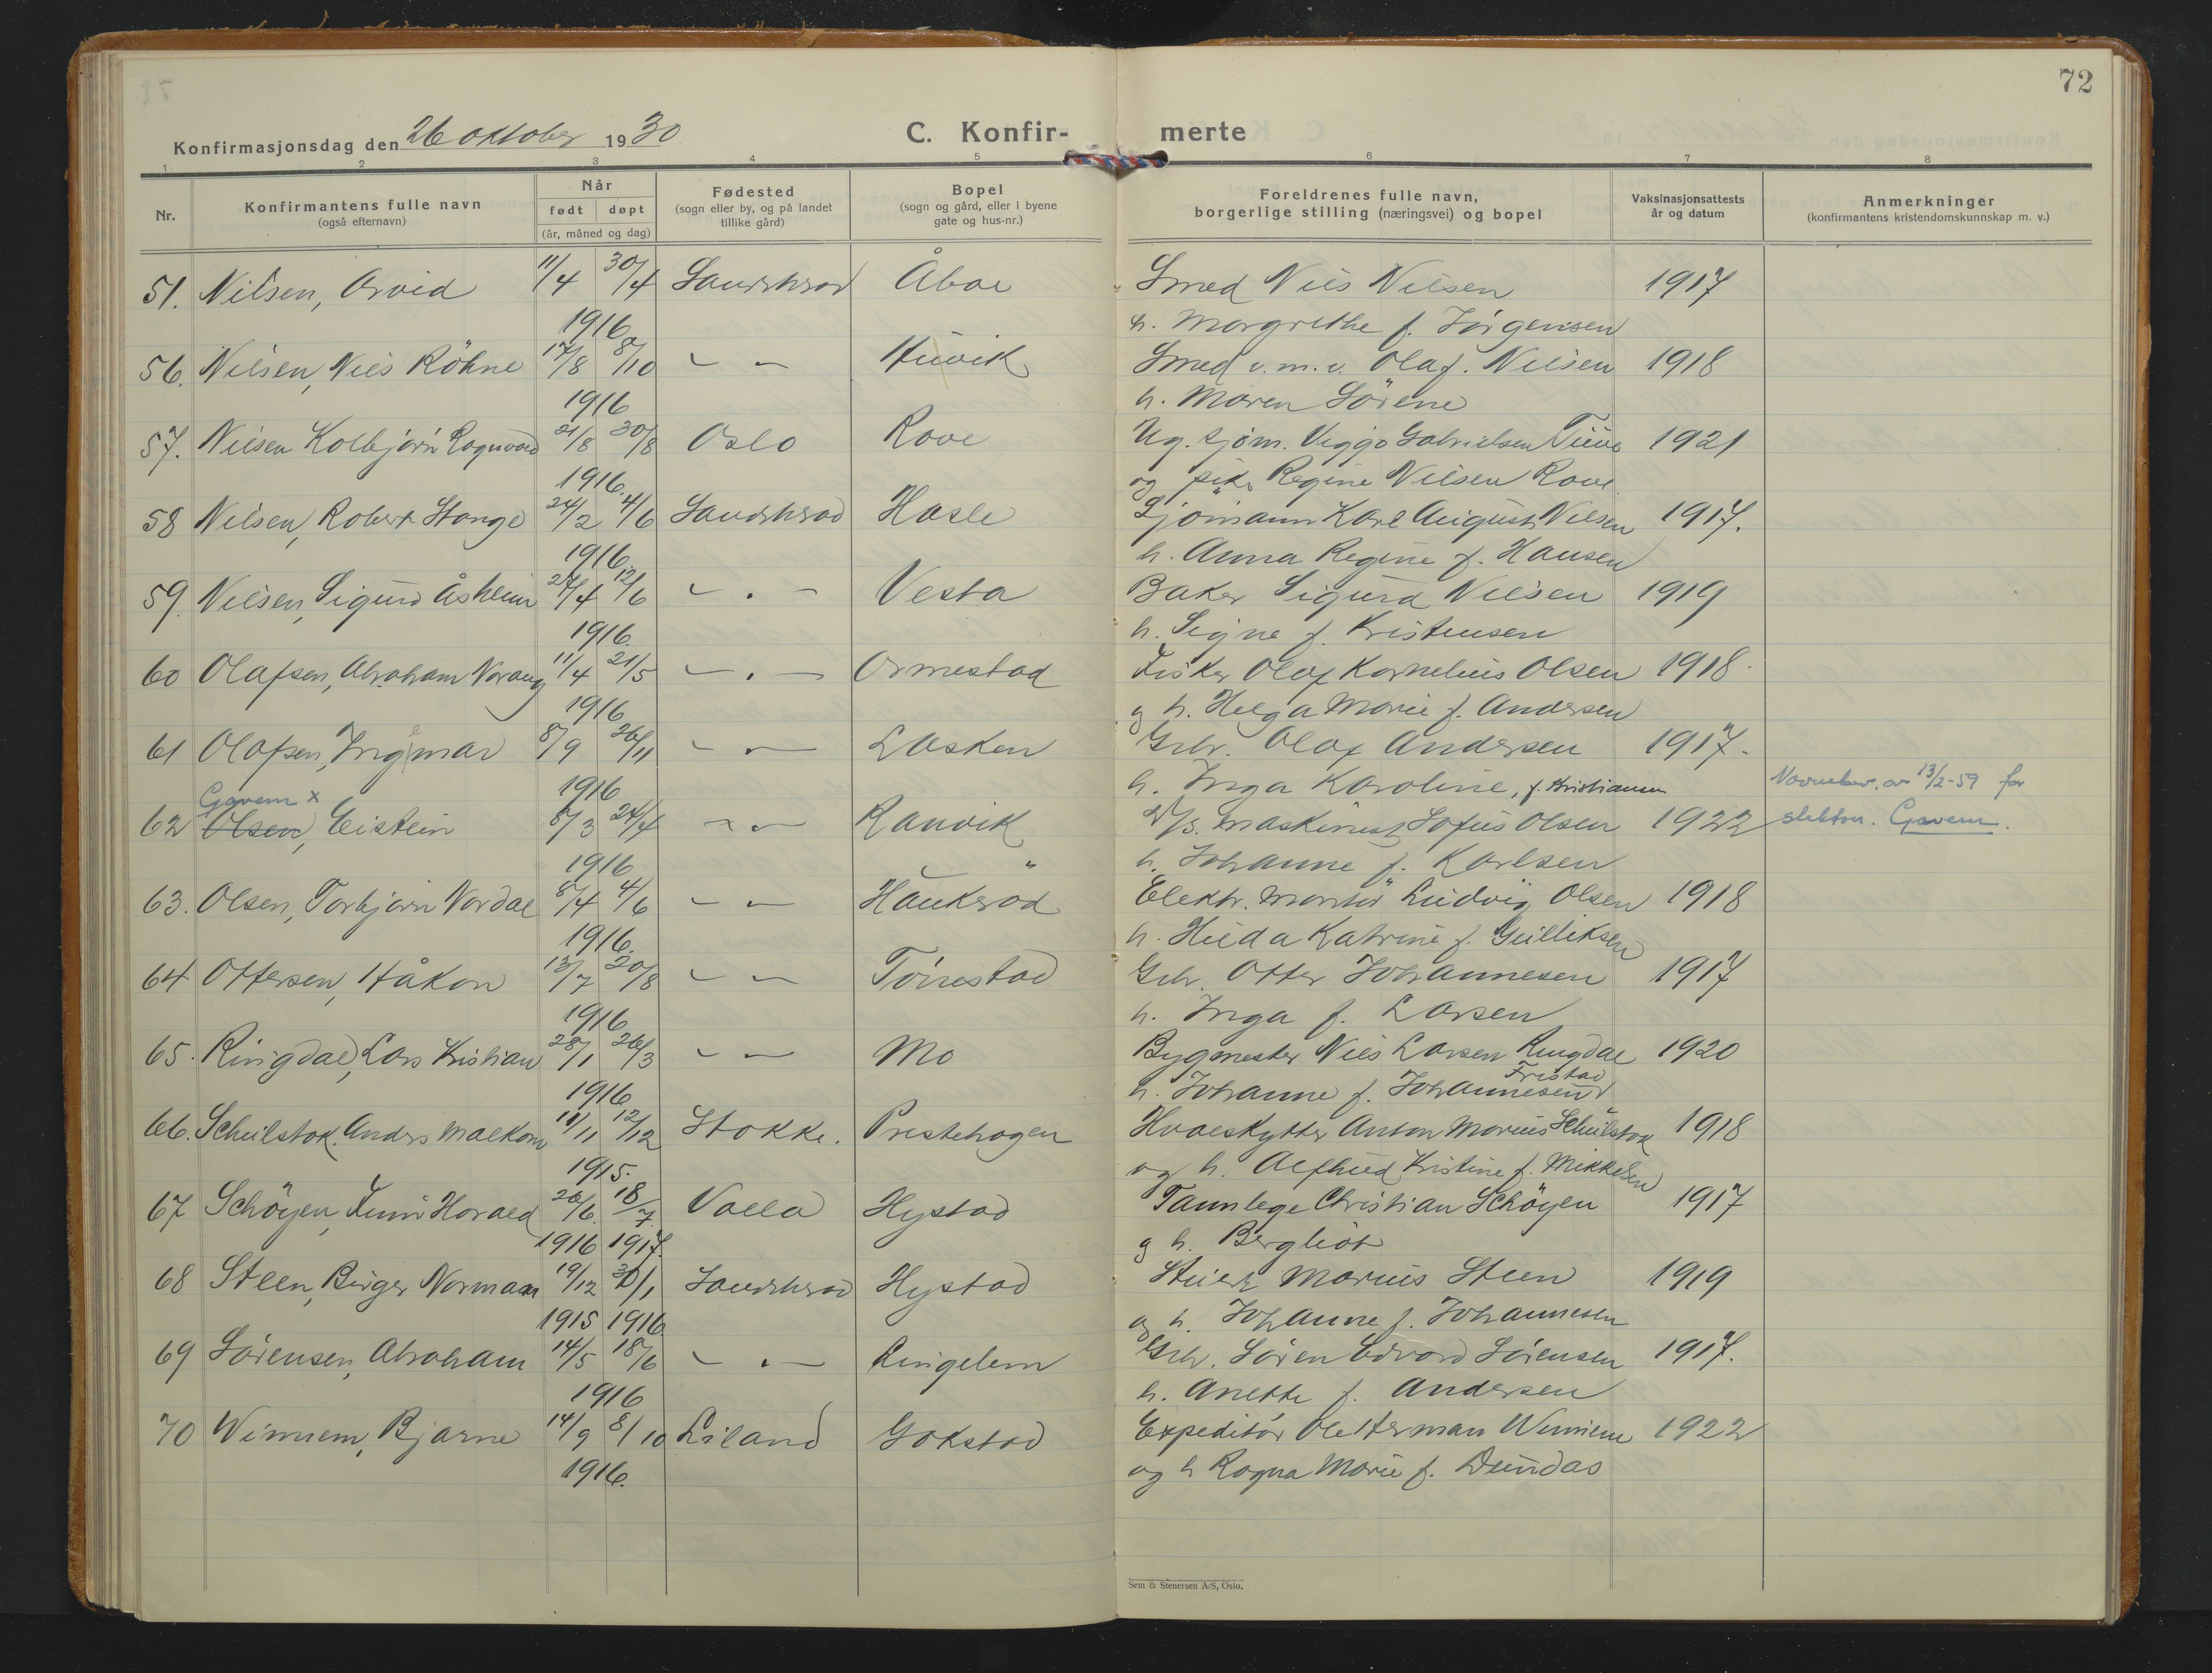 72
Konfirmasjonsdag den 26 oktober 1930
C. Konfir- merte
1 2 3 4 5 6 7 8
Nr.
Konfirmantens fulle navn
(også efternavn)
Når
født døpt
(år, måned og dag)
Fødested
(sogn eller by, og på landet
tillike gård)
Bopel
(sogn og gård, eller i byene
gate og hus-nr.)
Foreldrenes fulle navn,
borgerlige stilling (næringsvei) og bopel
Vaksinasjonsattests
år og datum
Anmerkninger
(konfirmantens kristendomskunnskap m. v.)
51. Nilsen, Arvid 11/4 30/4 Sandeherad Åbol Smed Nils Nilsen 1917
1916 h. Margrethe f. Jörgensen
56. Nilsen, Nils Röhne 17/8 8/10 - - Huvik Smed v.m.v. Olaf Nilsen 1918
1916 h. Maren Sörene
57. Nilsen Kolbjørn Ragnvald 21/8 30/8 Oslo Rove Ug. sjøm. Viggo Gabrielsen 1921
1916. og pike Regine Nilsen Rove
58 Nilsen, Robert Stange 24/2 4/6 Sandeherad Hasle Sjömann Karl August Nilsen 1917.
1916. h. Anna Regine f. Hansen
59. Nilsen, Sigurd Åsheim 27/4 12/6 - . - Vesta Baker Sigurd Nilsen 1919
1916. h. Signe f. Kristensen
60 Olafsen, Abraham Norang 11/4 21/5 - . - Ormestad Fisker Olaf Kornelius Olsen 1918
1916 og h. Helga Marie f. Andersen
61 Olafsen, Ingmar 8/9 26/11 - - Lasken Grbr. Olaf Andersen 1917.
1916 h. Inga Karoline, f. Kristiansen
Gavem x
Navnebev. av 13/2-59 for
62 Olsen, Eistein 8/3 24/4 - - Ranvik Maskinist Sofus Olsen 1922 slektsn. Gavem.
1916 h. Johanne f. Karlsen
63. Olsen, Torbjörn Nordal 8/4 4/6 - - Haukeröd Elektr. montör Ludvig Olsen 1918
1916. h. Hilda Katrine f. Gulliksen
64 Ottersen, Håkon 13/7 20/8 - - Tönnestad Grbr. Otter Johannesen 1917
1916 h. Inga f. Larsen
65. Ringdal, Lars Kristian 28/1 26/3 - - Mo Bygmester Nils Larsen Ringdal 1920
1916 h. Johanne f. Johannesen Fristad
66. Schulstok, Anders Malkom 11/11 12/12 Stokke. Prestehagen Hvalskytter Anton Marius Schulstok 1918
1915. og h. Alfhild Kristine f. Mikkelsen
67 Schöyen, Finn Harald 26/6. 18/7. Valla Hystad Tannlege Christian Schöyen 1917
1916 1917. og h. Bergliot
68 Steen, Birger Normann 19/12 30/1 Sandeherad Hystad Marius Steen 1919
1915 1916 og h. Johanne f. Johannesen
69 Sörensen, Abraham 14/5 18/6 - . - Ringelem Grbr. Sören Edvard Sörensen 1917.
1916 h. Anette f. Andersen
70 Winnem, Bjarne 14/9 8/10 Liland Gokstad Expeditör Ole Herman Winnem 1922
1916. og h Ragna Marie f. Dundas
Sem & Stenersen A/S, Oslo.